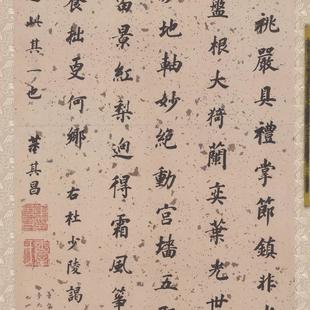 祧嚴具禮掌節鎮非
盤根大猗蘭奕葉光世
地軸妙絕動宮墻五
留景紅梨迥得霜風箏
養拙更何鄉 右杜少陵謁
此其一也 董其昌